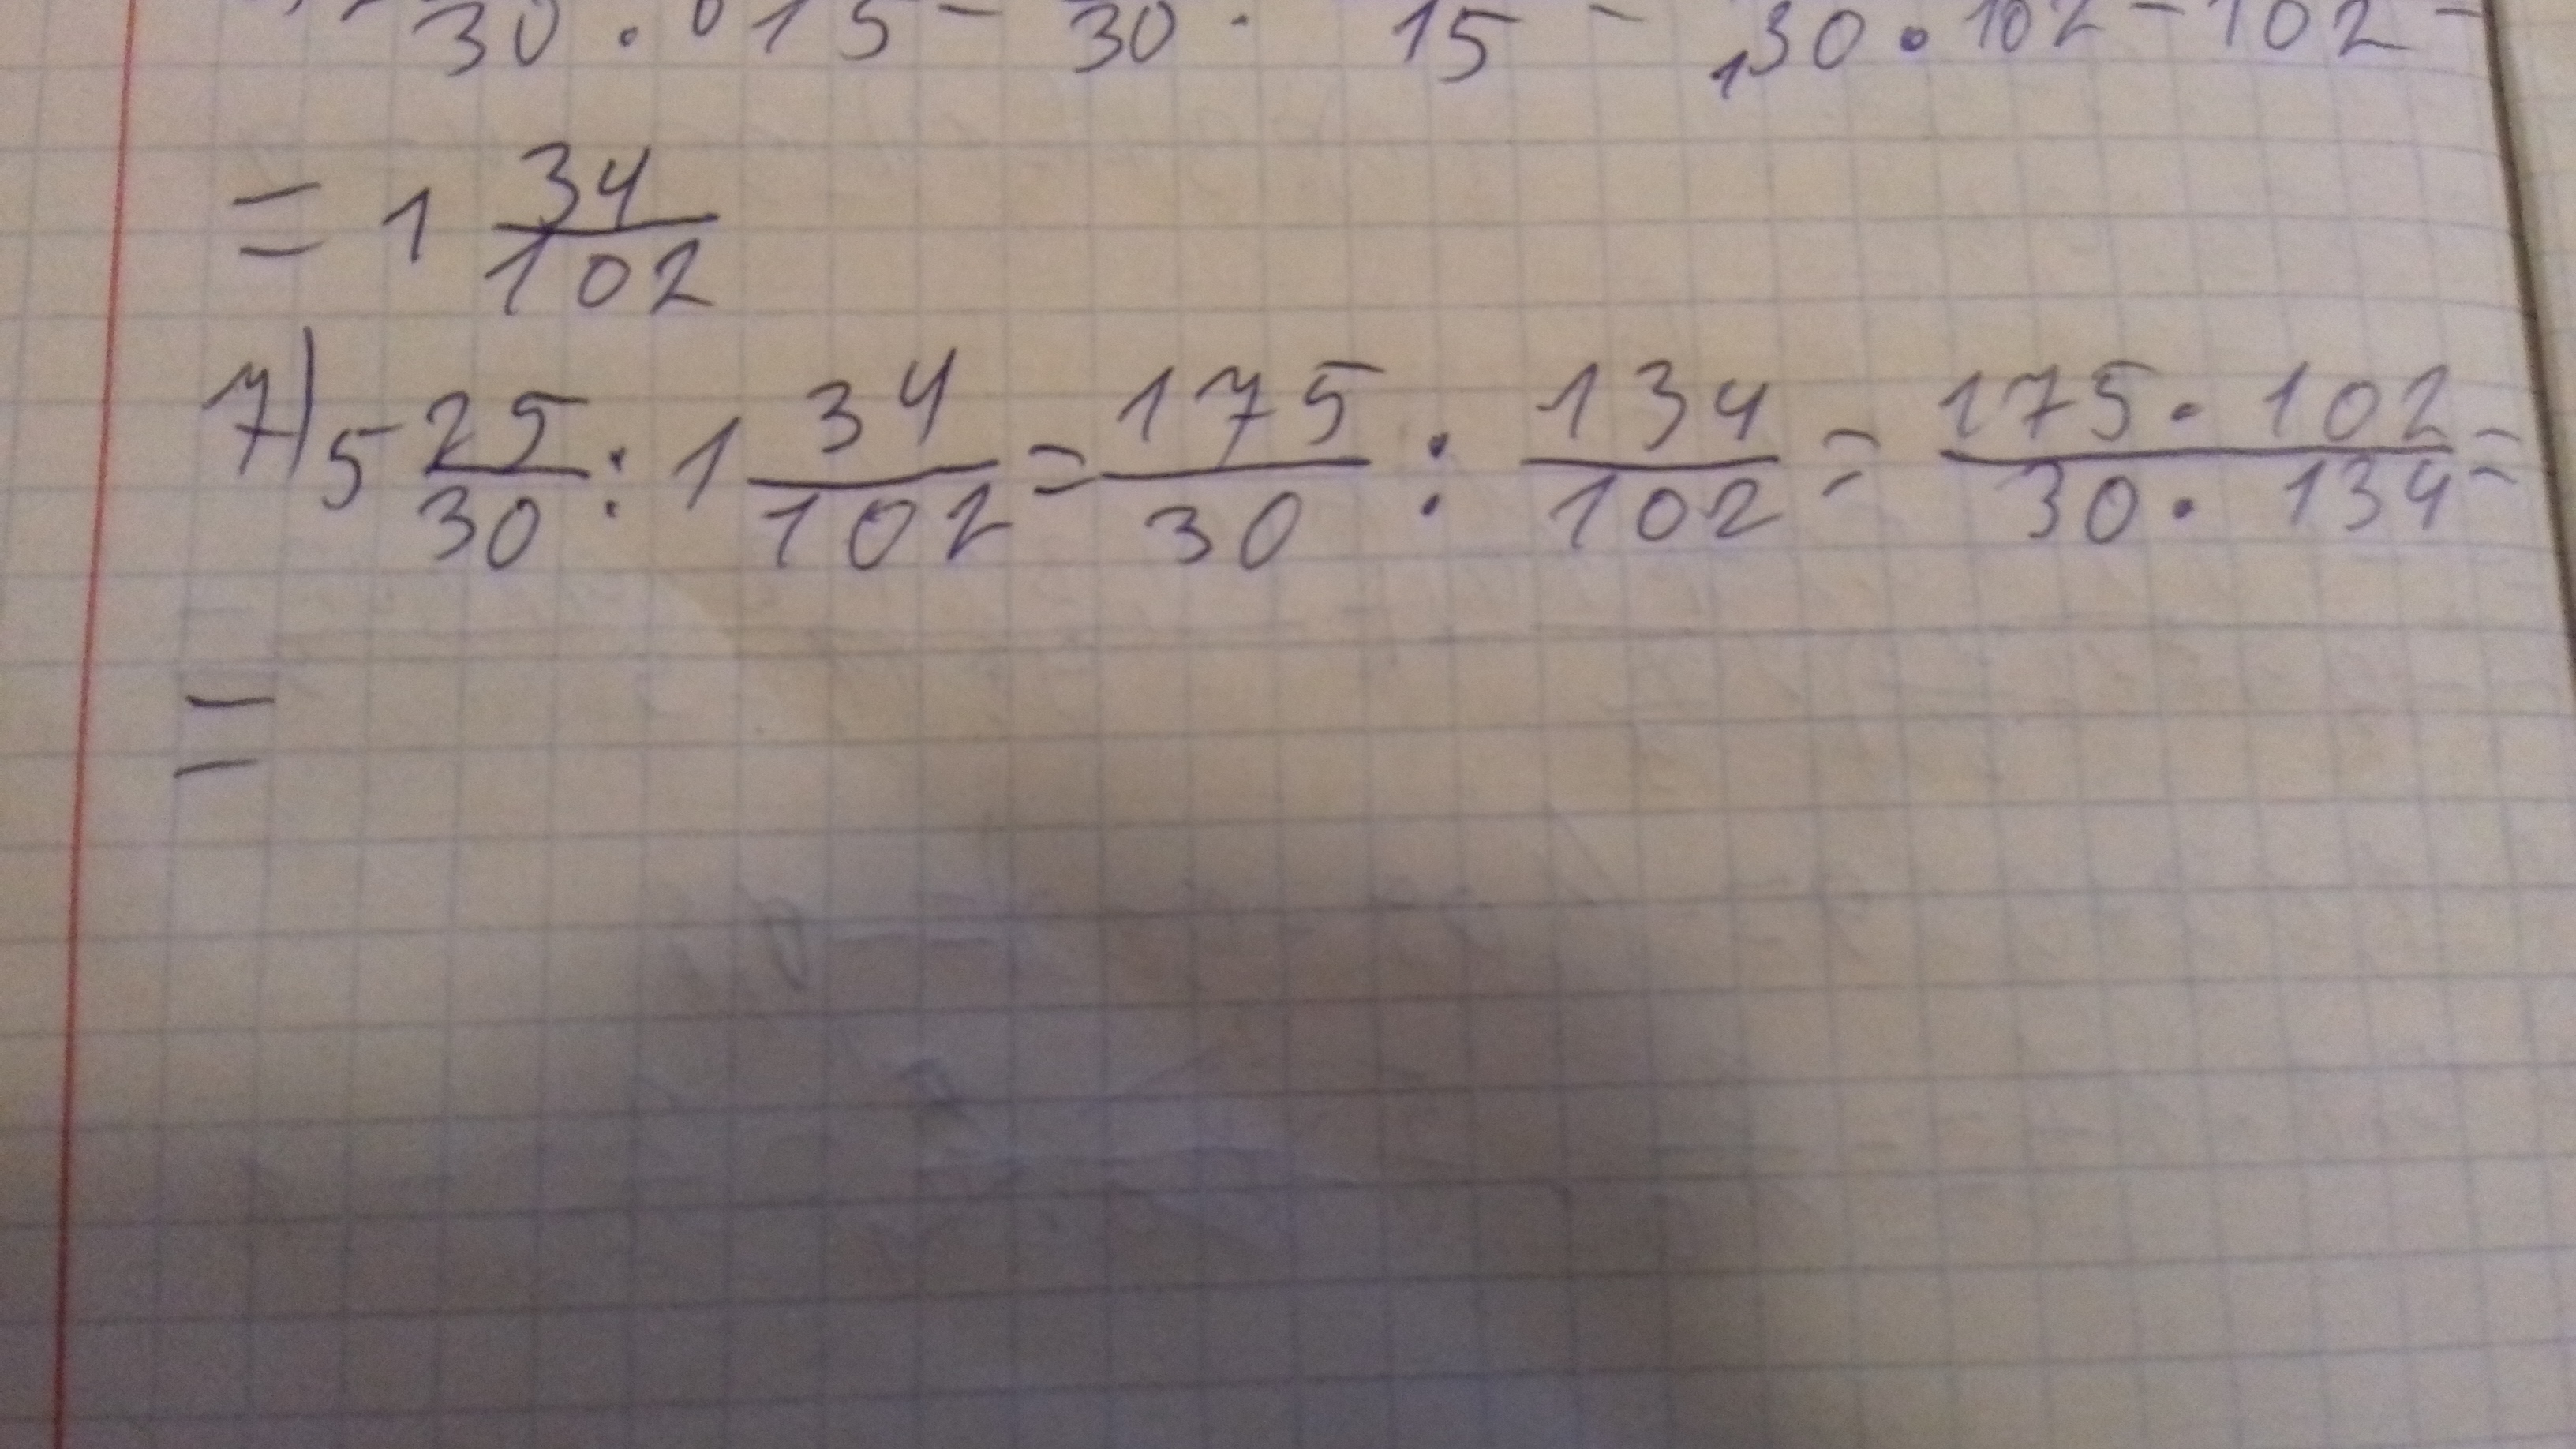 30 . 6 15 = 30 . 15 = 30 • 102 = 102 =
= 1 34/102
7) 5 25/30 : 1 34/102 = 175/30 : 134/102 = 175 • 102/30 • 134 =
=